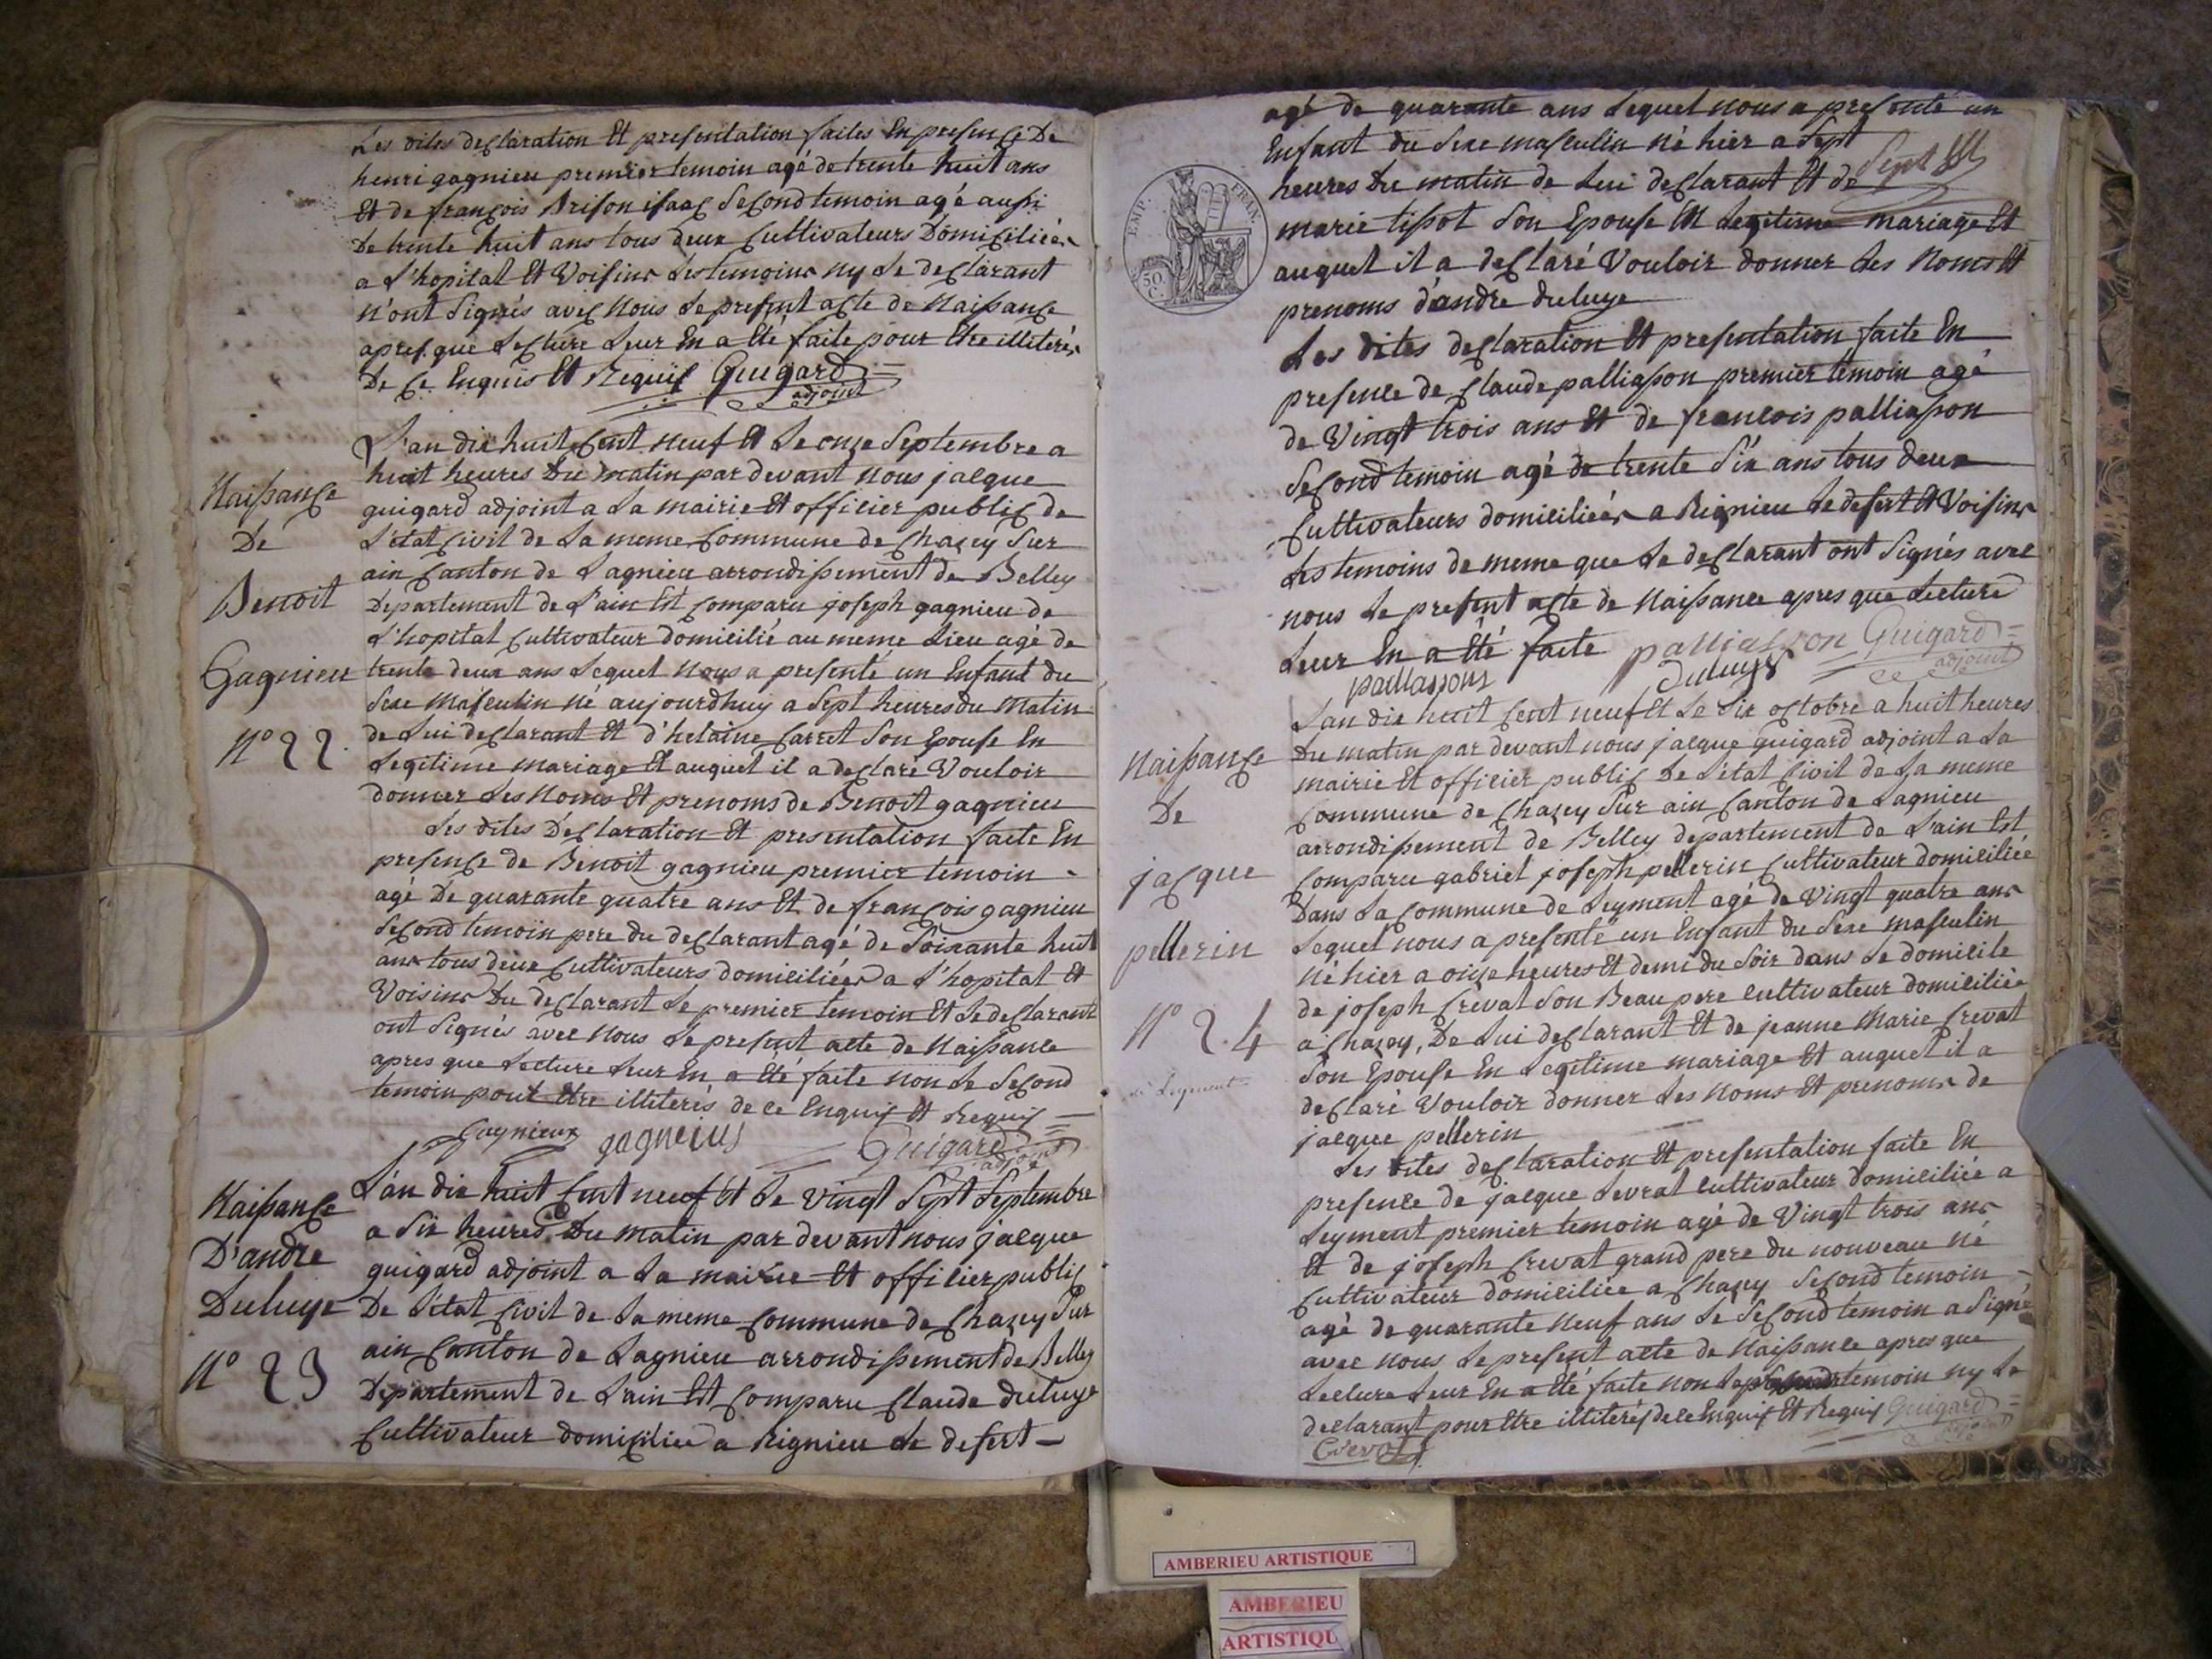 Les dites declaration Et presentation faites En presence De
henri gagnieu premier temoin agé de trente huit ans
Et de françois Brison isaac Second temoin agé aussi
De trente huit ans tous deux Cultivateurs Domiciliés
a L'hopital Et Voisins Les temoins ny Le declarant
n'ont Signés avec Nous Le present acte de Naissance
apres que Lecture Leur En a Eté faite pour Etre illiterés
De Ce Enquis Et Requis Guigard
adjoint
L'an dix huit Cent neuf Et Le onze Septembre a
huit heures Du matin par devant nous jacque
guigard adjoint a La mairie Et officier public de
L'etat Civil de La meme Commune de Chazey Sur
ain Canton de Lagnieu arrondissement de Belley
Departement de L'ain Est Comparu joseph gagnieu de
L'hopital Cultivateur domicilié au meme Lieu agé de
trente deux ans Lequel Nous a presenté un Enfant du
Sexe Masculin né aujourdhuy a Sept heures du Matin
de Lui declarant Et d'helaine Carret Son Epouse En
Legitime mariage Et auquel il a declaré Vouloir
donner Les Noms Et prenoms de Benoit gagnieu
Les dites Declaration Et presentation faite En
presence de Benoit gagnieu premier temoin
agé De quarante quatre ans Et de françois gagnieu
Second temoin pere du declarant agé de Soixante huit
ans tous deux Cultivateurs domiciliés a L'hopital Et
Voisins Du declarant Le premier temoin Et Le declarant
ont Signés avec Nous Le present acte de Naissance
apres que Lecture Leur En a Eté faite non Le Second
temoin pour Etre illiterés de ce Enquis Et Requis
Gagnieux gagneius Guigard
adjoint
Naissance
De
Benoit
Gagnieu
N° 22
L'an dix huit Cent neuf Et Le Vingt Sept Septembre
a Six heures Du matin par devant nous jacque
guigard adjoint a La mairie Et officier public
De L'etat Civil de La meme Commune de Chazey Sur
ain Canton de Lagnieu arrondissement de Belley
Departement de L'ain Est Comparu Claude duluye
Cultivateur domicilié a Rignieu Le desert
Naissance
D'andre
Duluye
N° 23
agé de quarante ans Lequel nous a presenté un
Enfant du Sexe masculin né hier a Sept
heures Du matin de Lui declarant Et de
marie tissot Son Epouse En Legitime mariage Et
auquel il a declaré Vouloir donner Les Noms Et
prenoms d'andre duluye
Les dites declaration Et presentation faite En
presence de Claude palliasson premier temoin agé
de Vingt trois ans Et de francois palliasson
Second temoin agé de trente Six ans tous deux
Cultivateurs domiciliés a Rignieu Le desert Et Voisins
Les temoins de meme que Le declarant ont Signés avec
nous Le present acte de Naissance apres que Lecture
Leur En a Eté faite palliasson Guigard
adjoint
paillassons duluys
EMP. FRAN.
50 C.
L'an dix huit Cent neuf Et Le dix octobre a huit heures
Du matin par devant nous jacque guigard adjoint a La
mairie Et officier public De L'etat Civil de La meme
Commune de Chazey Sur ain Canton de Lagnieu
arrondissement de Belley departement de L'ain Est
Comparu gabriel joseph pellerin Cultivateur domicilié
Dans La Commune de Leyment agé de Vingt quatre ans
Lequel nous a presenté un Enfant du Sexe masculin
Né hier a onze heures Et demi du Soir dans Le domicile
de joseph Crevat Son Beau pere Cultivateur domicilié
a Chazey, De Lui declarant Et de jeanne Marie Crevat
Son Epouse En Legitime mariage Et auquel il a
declaré Vouloir donner Les Noms Et prenoms de
jacque pellerin
Les dites declaration Et presentation faite En
presence de jacque Levrat Cultivateur domicilié a
Leyment premier temoin agé de Vingt trois ans
Et de joseph Crevat grand pere du nouveau né
Cultivateur domicilié a Chazey Second temoin
agé de quarante Neuf ans Le Second temoin a Signé
avec nous Le present acte de Naissance apres que
Lecture Leur En a Eté faite non Le temoin ny Le
declarant pour Etre illiterés de ce Enquis Et Requis Guigard
Crevat
Naissance
De
jacque
pellerin
N° 24
Leyment
AMBERIEU ARTISTIQUE
AMBERIEU
ARTISTIQU